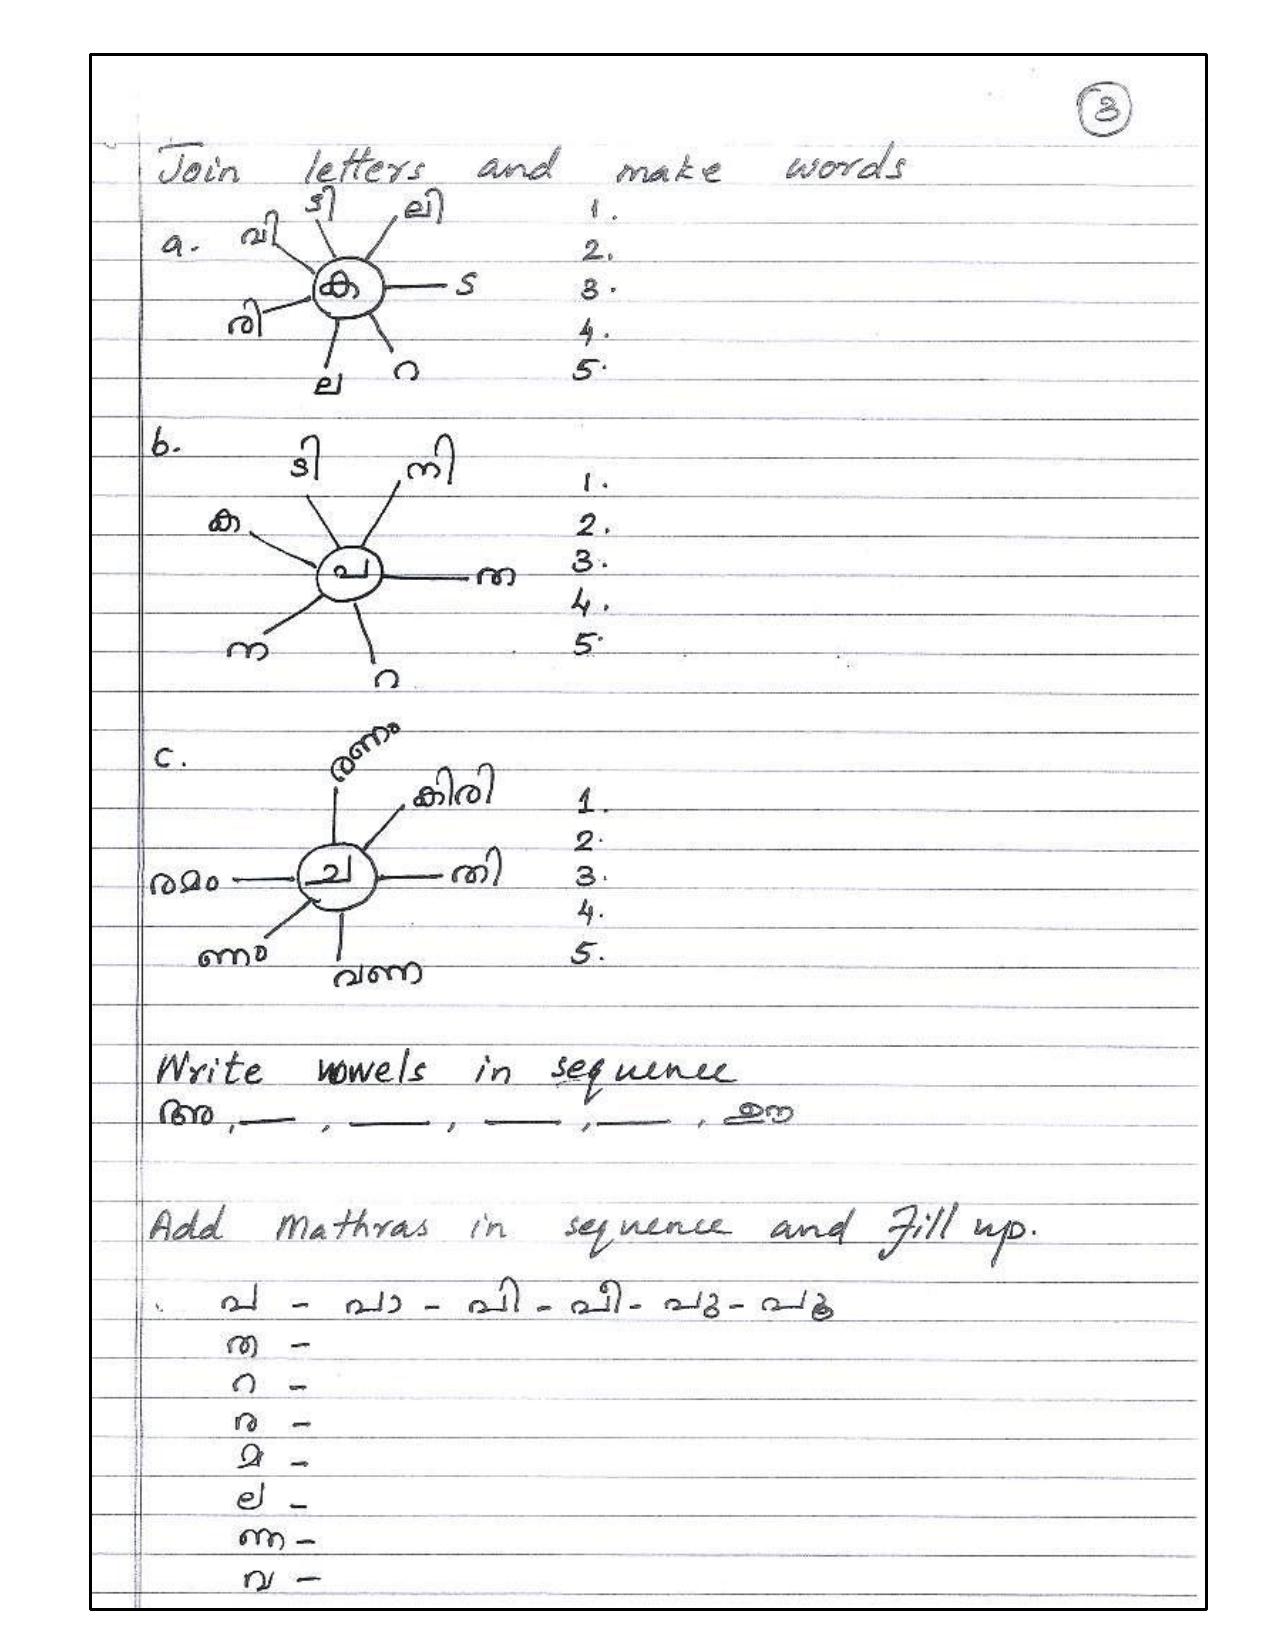 3
Join letters and make words
a.
ടി
ലി
വി
ക
ട
രി
ല
റ
1.
2.
3.
4.
5.
b.
ടി
നി
ക
പ
ത
ന
റ
1.
2.
3.
4.
5.
c.
രണം
കിരി
രമം
ച
തി
ണം
വണ
1.
2.
3.
4.
5.
Write vowels in sequence
അ, __ , __ , __ , __ , ഊ
Add Mathras in sequence and fill up.
പ - പാ - പി - പീ - പു - പൂ
ത -
റ -
ര -
മ -
ല -
ണ -
വ -